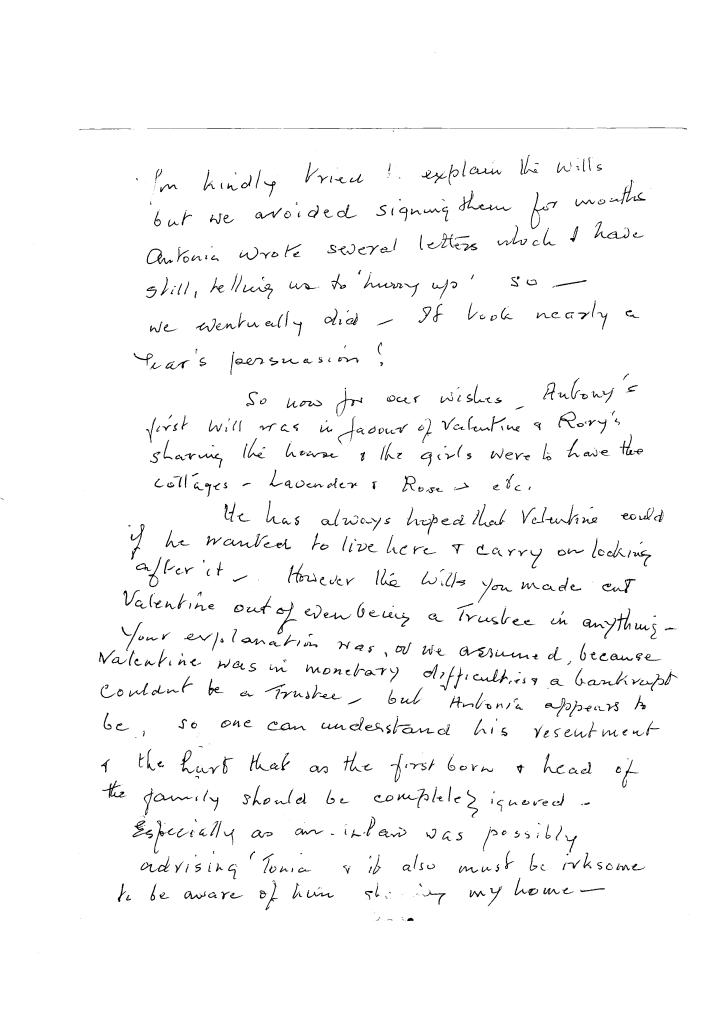 kindly tried explain the Wills
but we avoided signing them for months
Antonia wrote several letters which I have
still, telling us to 'hurry up' so —
we eventually did – It took nearly a
Year's persuasion!
So now for our wishes – Antony's
first Will was in favour of Valentine & Rory's
sharing the house & the girls were to have the
cottages – Lavender & Rose → etc.
He has always hoped that Valentine could
if he wanted to live here & carry on looking
after it – However the Wills you made cut
Valentine out of even being a Trustee in anything –
Your explanation was, or we assumed, because
Valentine was in monetary difficulties a bankrupt
couldn't be a Trustee – but Antonia appears to
be, so one can understand his resentment
& the hurt that as the first born & head of
the family should be completely ignored –
Especially as an in-law was possibly
advising 'Tonia & it also must be irksome
to be aware of him my home —